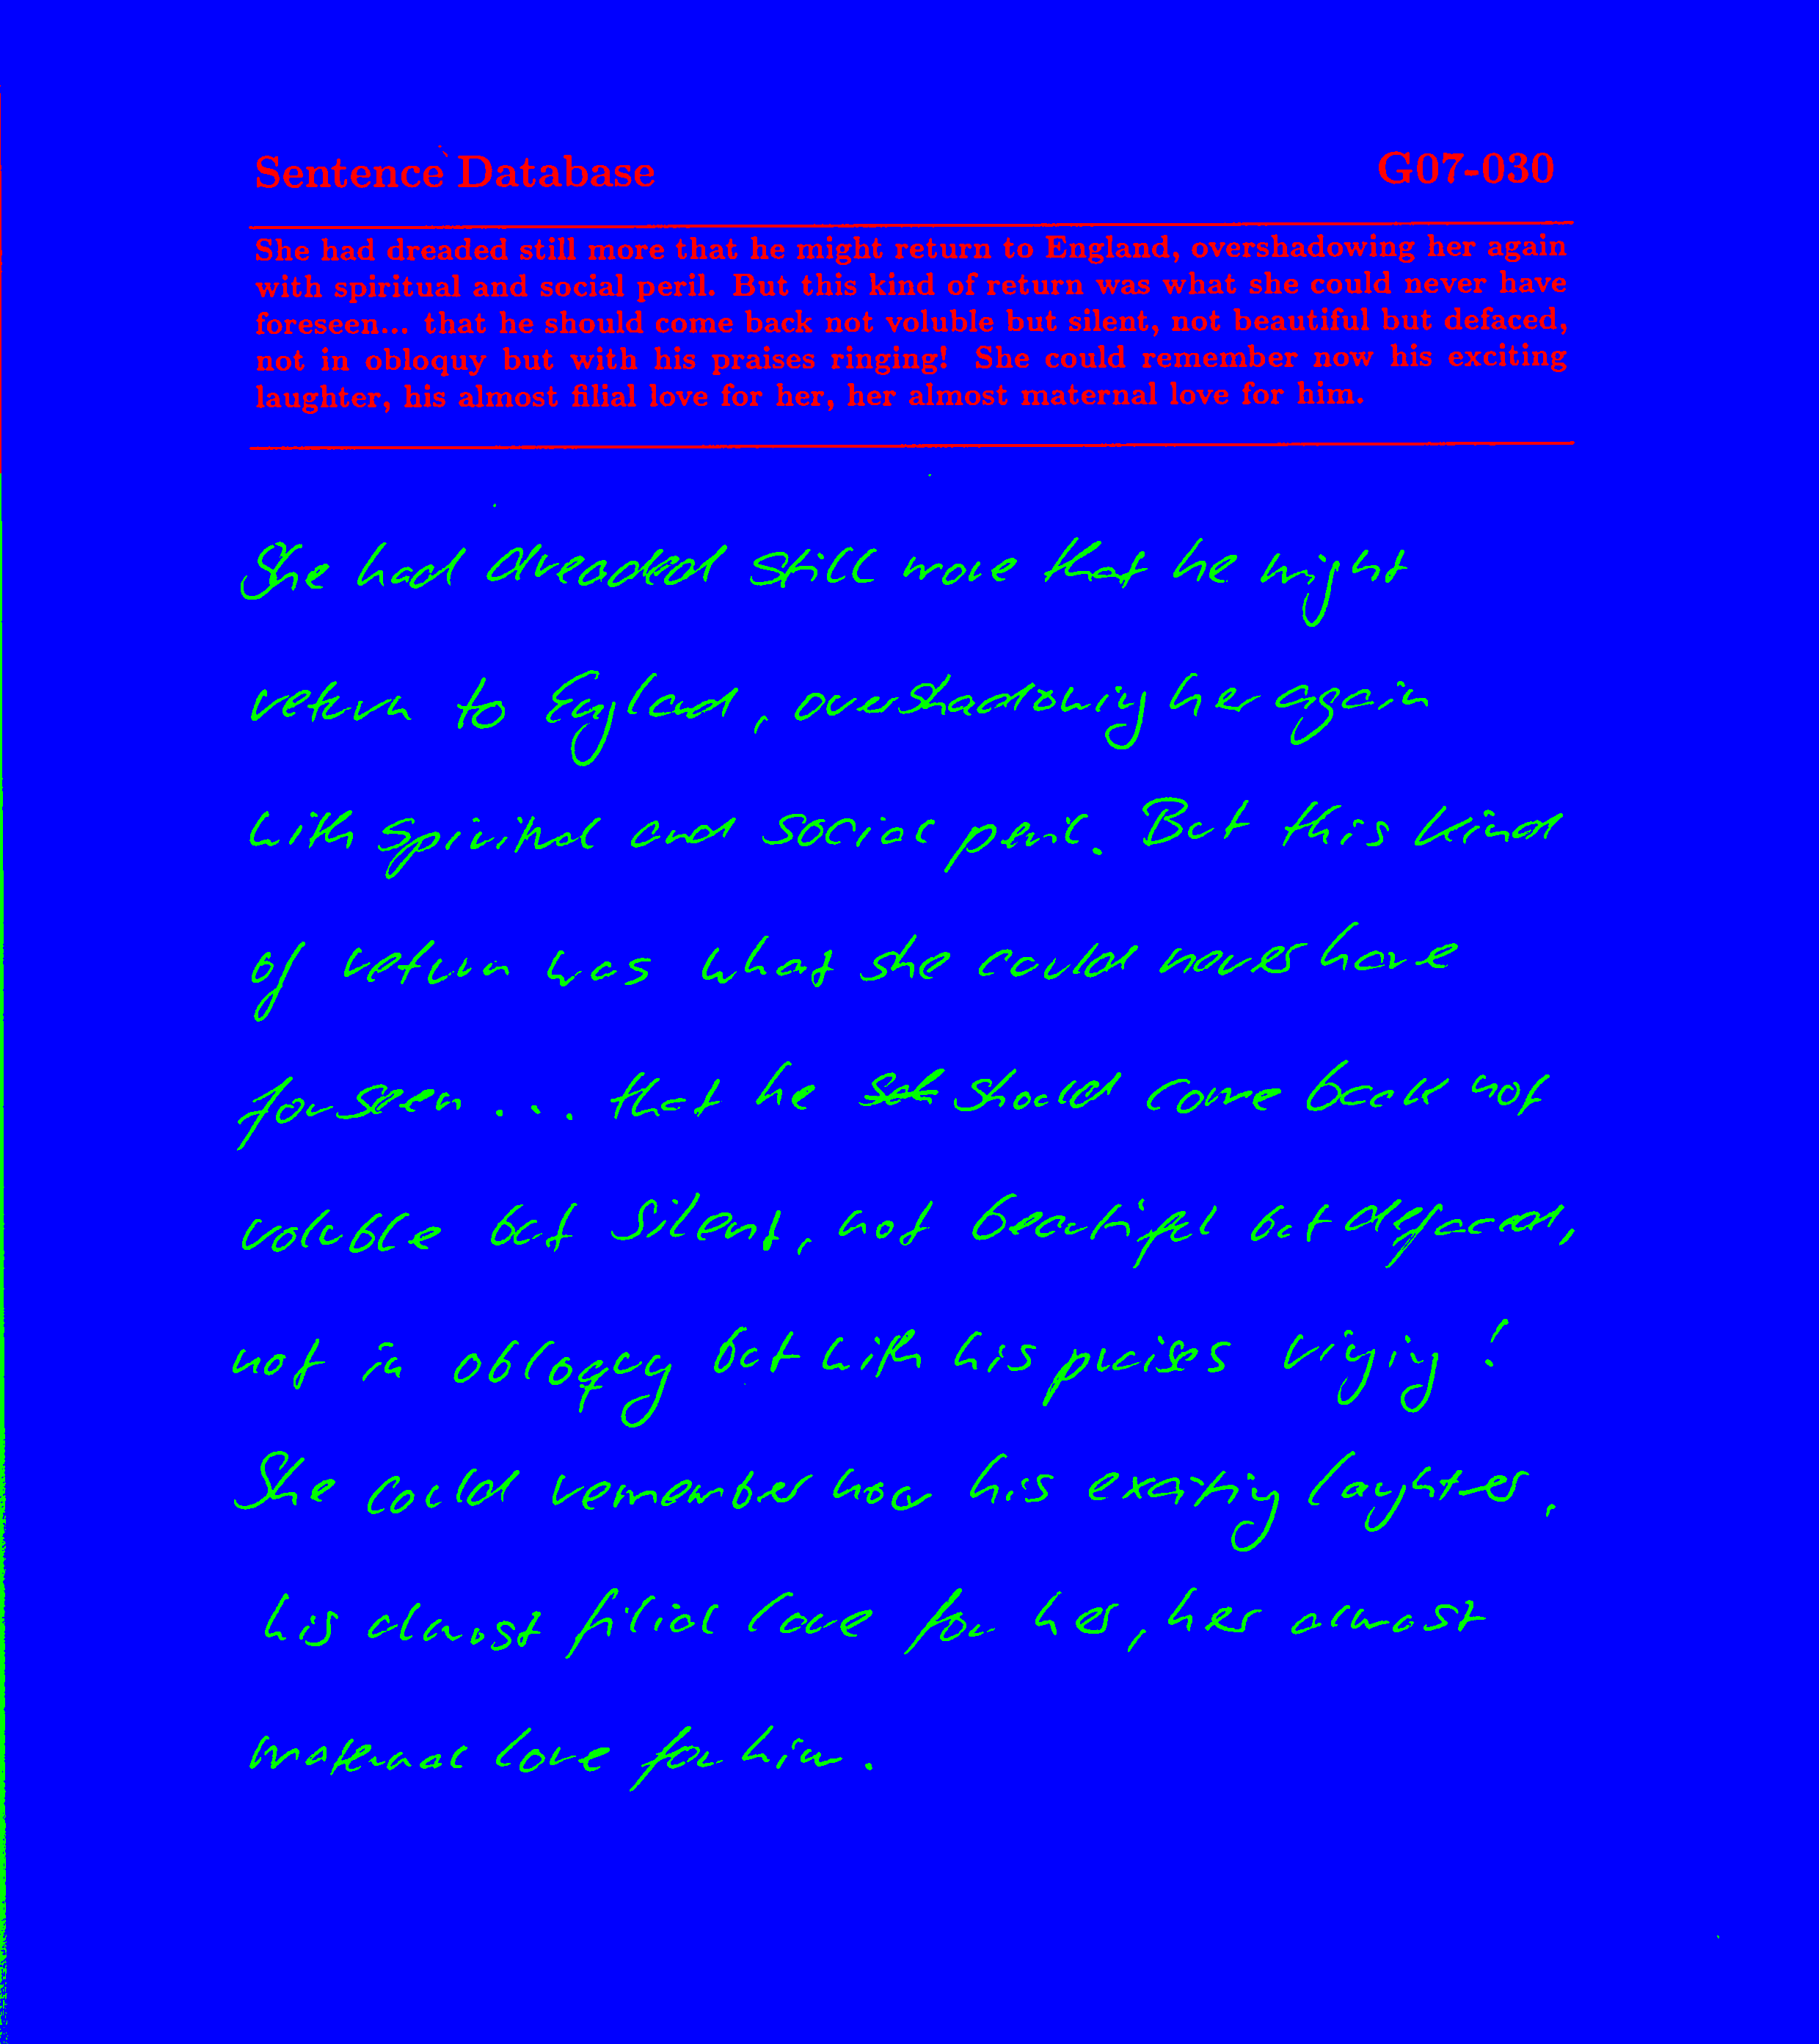 Sentence Database G07-030
She had dreaded still more that he might return to England, overshadowing her again
with spiritual and social peril. But this kind of return was what she could never have
foreseen... that he should come back not voluble but silent, not beautiful but defaced,
not in obloquy but with his praises ringing! She could remember now his exciting
laughter, his almost filial love for her, her almost maternal love for him.
She had dreaded still more that he might
return to England, overshadowing her again
with spiritual and social peril. But this kind
of return was what she could never have
forseen ... that he should come back not
voluble but silent, not beautiful but defaced,
not in obloquy but with his praises ringing!
She could remember now his exciting laughter,
his almost filial love for her, her almost
maternal love for him.